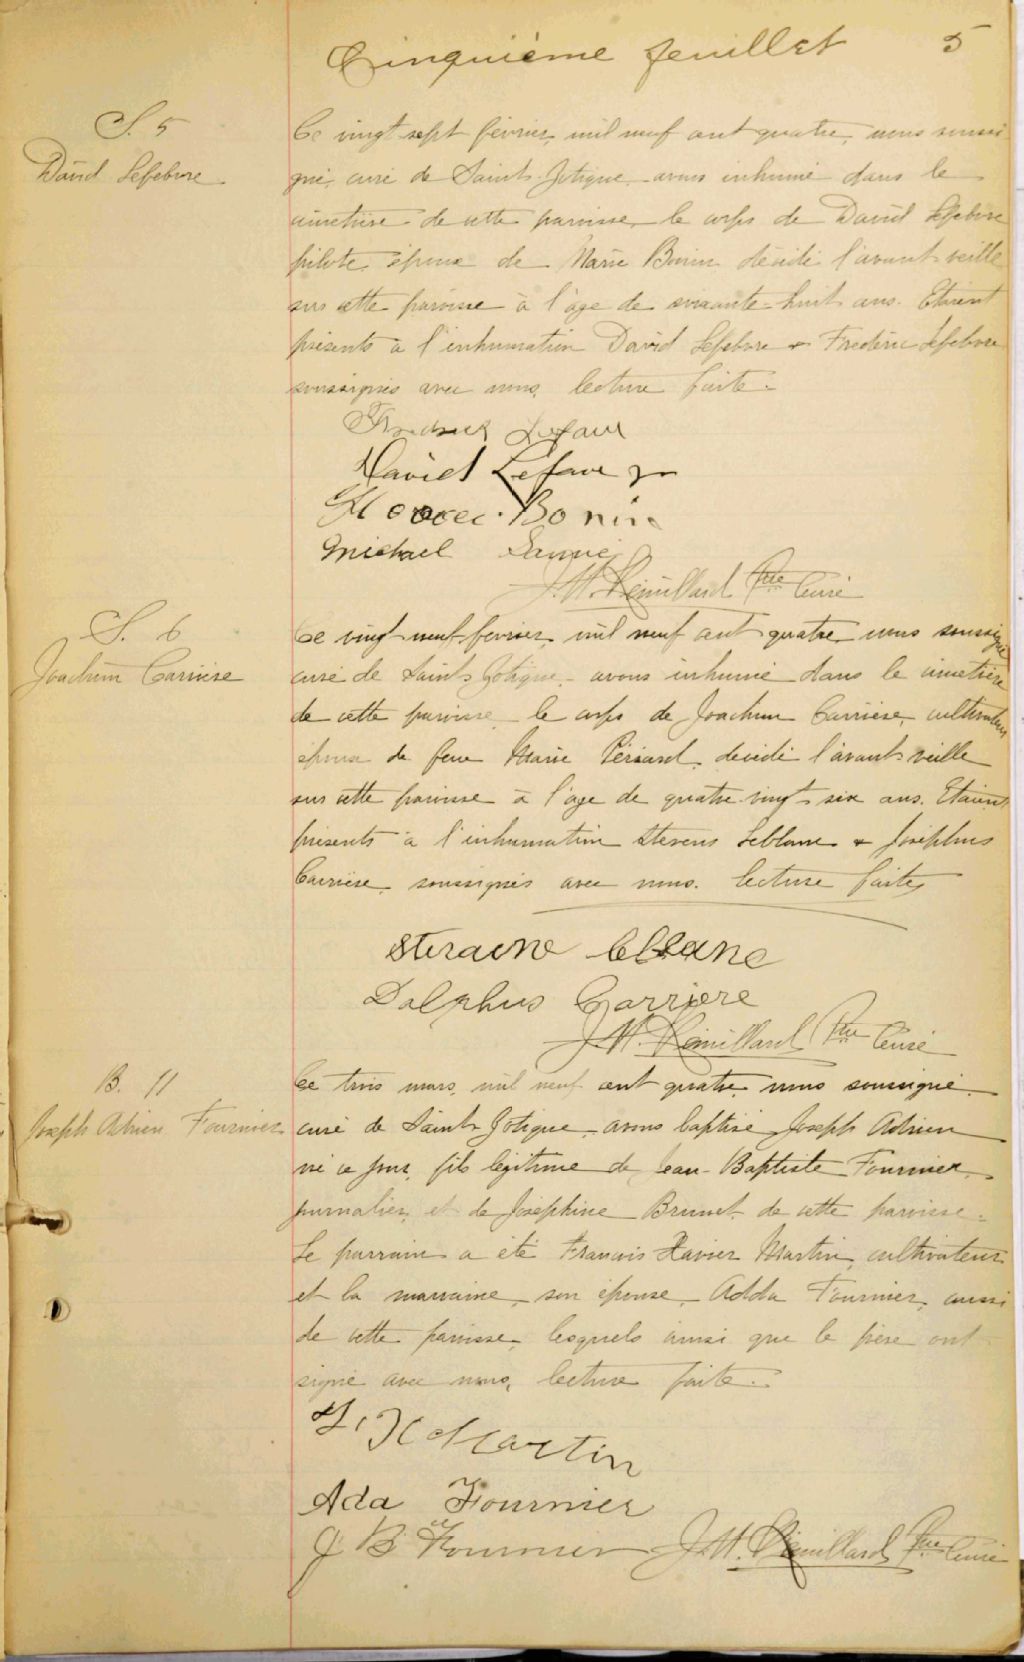 Cinquième feuillet 5
S. 5
David Lefebvre
Ce vingt sept février, mil neuf cent quatre, nous soussi
gné, curé de Saint Zotique, avons inhumé dans le
cimetière de cette paroisse, le corps de David Lefebvre
pilote, époux de Marie Bonin décédé l'avant veille
sur cette paroisse à l'âge de soixante-huit ans. Etaient
présents à l'inhumation David Lefebvre & Frédéric Lefebvre
soussignés avec nous, lecture faite.
Lefave
David Lefave jr
Bonin
Michael
J. M. Rémillard Ptre Curé
S. 6
Joachim Carrière
Ce vingt neuf février, mil neuf cent quatre, nous soussigné
curé de Saint Zotique, avons inhumé dans le cimetière
de cette paroisse, le corps de Joachim Carrière, cultivateur
époux de feue Marie décédé l'avant veille
sur cette paroisse à l'âge de quatre vingt six ans. Etaient
présents à l'inhumation Stevens Leblanc & Josephus
Carrière, soussignés avec nous. lecture faite,
Leblanc
Dolphus Carriere
J. M. Rémillard Ptre Curé
B. 11
Joseph Adrien Fournier
Ce trois mars, mil neuf cent quatre, nous soussigné,
curé de Saint Zotique, avons baptisé Joseph Adrien
né ce jour, fils légitime de Jean-Baptiste Fournier,
journalier, et de Joséphine Brunet, de cette paroisse.
Le parrain a été François Xavier Martin, cultivateur
et la marraine, son épouse, Adda Fournier, aussi
de cette paroisse, lesquels ainsi que le père ont
signé avec nous, lecture faite.
F. X Martin
Ada Fournier
J B Fournier J. M. Rémillard Ptre Curé